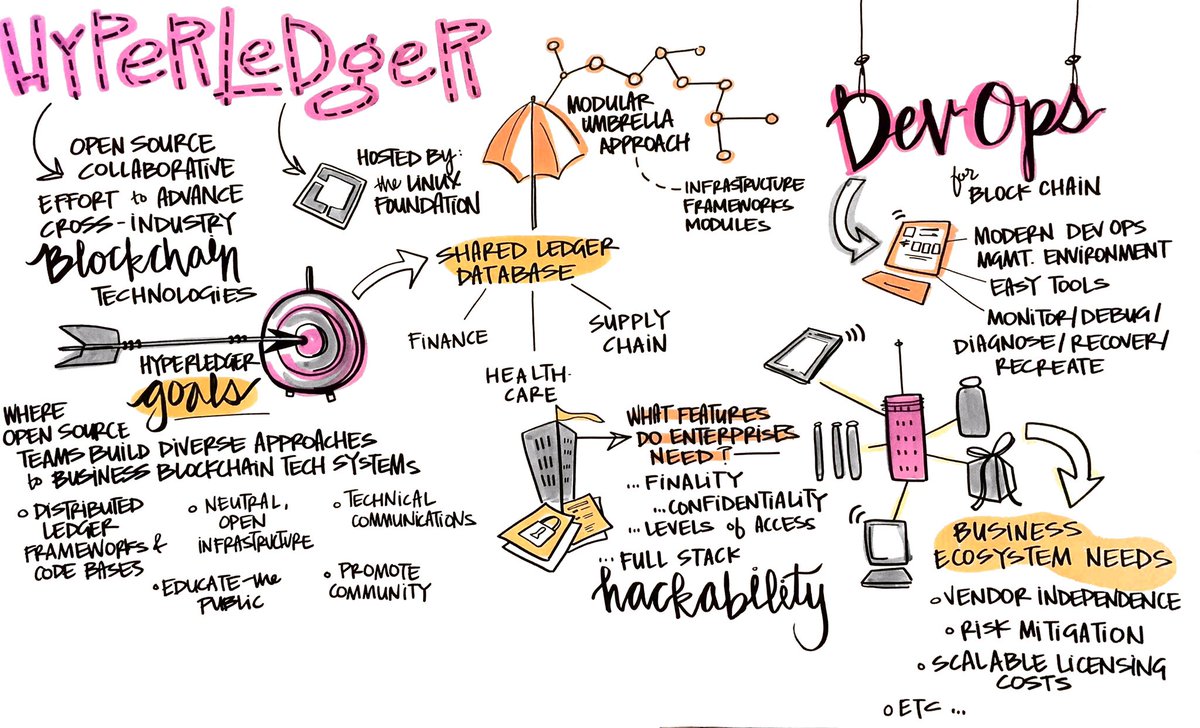 HYPERLEDGER
OPEN SOURCE
COLLABORATIVE
EFFORT to ADVANCE
CROSS-INDUSTRY
Blockchain
TECHNOLOGIES
HOSTED BY:
the LINUX
FOUNDATION
MODULAR
UMBRELLA
APPROACH
INFRASTRUCTURE
FRAMEWORKS
MODULES
SHARED LEDGER
DATABASE
FINANCE
HEALTH-
CARE
SUPPLY
CHAIN
HYPERLEDGER
goals
WHERE
OPEN SOURCE
TEAMS BUILD DIVERSE APPROACHES
to BUSINESS BLOCKCHAIN TECH SYSTEMS
o DISTRIBUTED
LEDGER
FRAMEWORKS &
CODE BASES
o NEUTRAL,
OPEN
INFRASTRUCTURE
o TECHNICAL
COMMUNICATIONS
o EDUCATE the
PUBLIC
o PROMOTE
COMMUNITY
WHAT FEATURES
DO ENTERPRISES
NEED?
... FINALITY
... CONFIDENTIALITY
... LEVELS of ACCESS
... FULL STACK
hackability
DevOps
for
BLOCK CHAIN
MODERN DEV OPS
MGMT. ENVIRONMENT
EASY TOOLS
MONITOR/DEBUG/
DIAGNOSE/RECOVER/
RECREATE
BUSINESS
ECOSYSTEM NEEDS
o VENDOR INDEPENDENCE
o RISK MITIGATION
o SCALABLE LICENSING
COSTS
o ETC ...